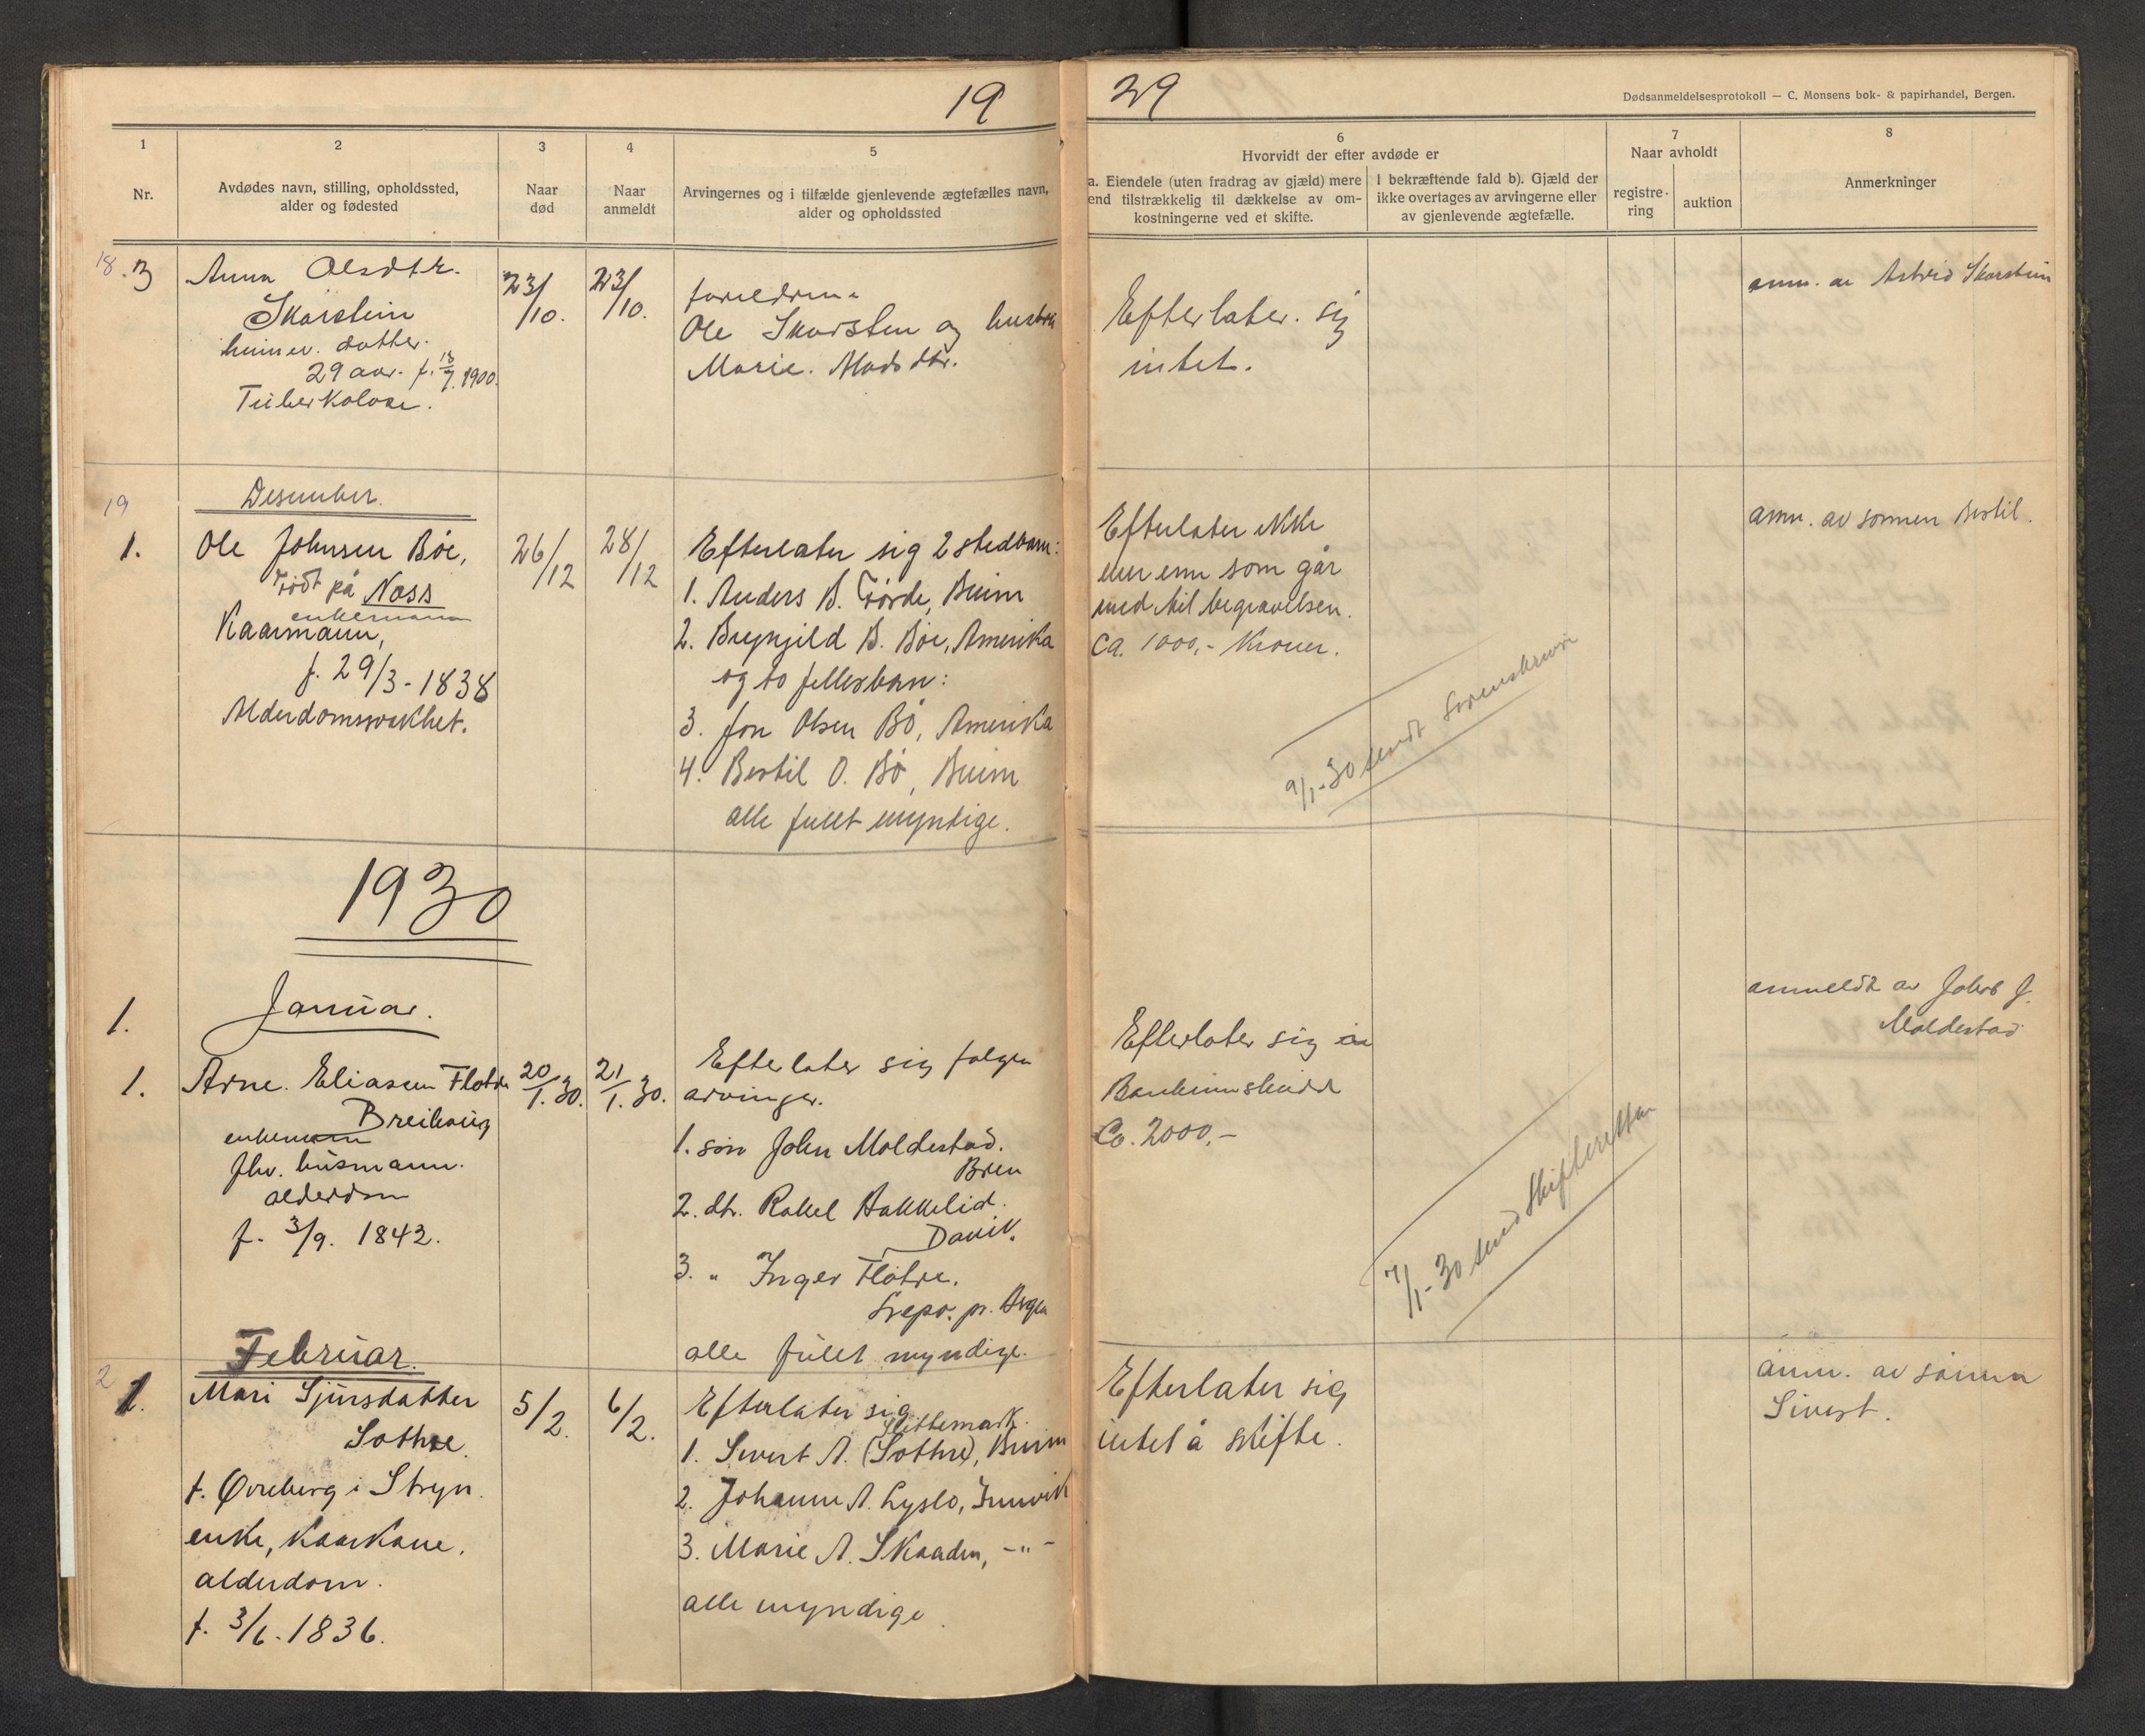 19
29
Dødsanmeldelsesprotokoll — C. Monsens bok- & papirhandel, Bergen.
1
Nr.
2
Avdødes navn, stilling, opholdssted,
alder og fødested
3
Naar
død
4
Naar
anmeldt
5
Arvingernes og i tilfælde gjenlevende ægtefælles navn,
alder og opholdssted
6
Hvorvidt der efter avdøde er
a. Eiendele (uten fradrag av gjæld) mere
end tilstrækkelig til dækkelse av om-
kostningerne ved et skifte.
I bekræftende fald b). Gjæld der
ikke overtages av arvingerne eller
av gjenlevende ægtefælle.
7
Naar avholdt
registre-
ring
auktion
8
Anmerkninger
18. 3
Anna Olsdtr.
Skarstein
datter.
29 aar. f. 13/7. 1900.
Tuberkolose.
23/10.
23/10.
foreldrene
Ole Skarsten og hustru
Marie. Madsdtr.
Efterlater. sig
intet.
anm. av Astrid Skarstein
19
Desember.
1.
Ole Johnsen Böe,
Födt på Noss
enkemann
Kaarmann,
f. 29/3-1838
Alderdomsvakhet.
26/12
28/12
Efterlater sig 2 stedbarn:
1. Anders B. Förde, Breim
2. Brynjild B. Böe, Amerika
og to fellesbarn:
3. Jon Olsen Bö, Amerika
4. Bertil O. Bö, Breim
alle fullt myndige.
Efterlater ikke
mer enn som går
med til begravelsen.
Ca. 1000,- Kroner.
9/1-30 sendt Sorenskriver
anm. av sönnen Bertil.
1930
1.
Januar.
1.
Arne. Eliassen Flotre
Breihaug
enkemann
fhv. husmann.
alderdom
f. 3/9. 1842.
20/1.30.
21/1.30.
Efterlater sig følgen
arvinger.
1. sön John Moldestad.
Breim
2. dtr. Rakel Hakkelid.
Davik.
3. " Inger Flötre.
pr. Bergen
alle fullt myndige.
Efterlater sig
Bankinnskudd
Ca. 2000.-
7/1-30 send Skifteretten
anmeldt av Jakob J.
Moldestad
Februar.
2
1.
Mari Sjursdatter
Sothre
f. Øvreberg i Stryn.
enke, kaarkone.
alderdom.
f. 3/6-1836.
5/2.
6/2.
Efterlater sig
Slettemark.
1. Sivert A. (Sothre), Breim
2. Johanne A. Lyslo, Innvik
3. Marie A. Skaaden, -"-
alle myndige.
Efterlater sig
intet å skifte.
anm. av sönnen
Sivert.